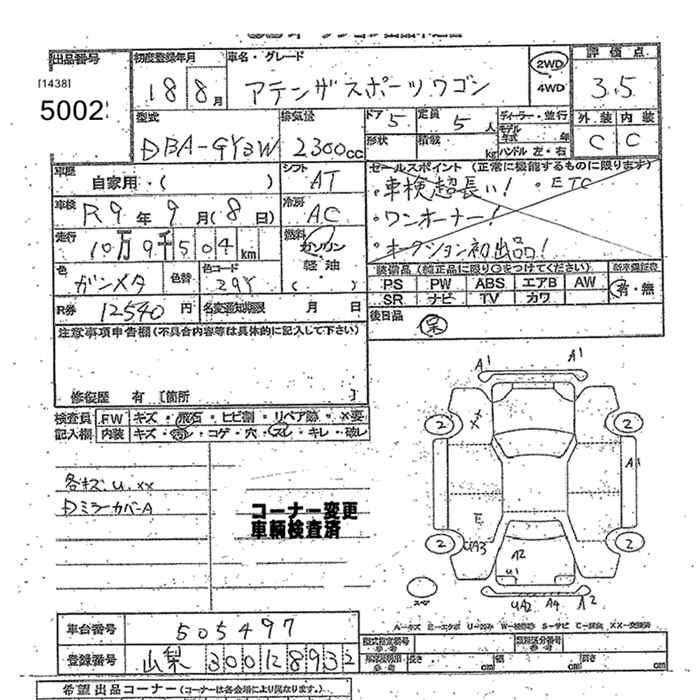 出品番号
[1438]
5002
初度登録年月
18 8月
車名・グレード
アテンザスポーツワゴン
2WD
4WD
評価点
3.5
外装 内装
C C
型式
DBA-GY3W
排気量
2300cc
ドア 5
定員 5人
形状
積載 kg
ディーラー・並行
モデル年式 年
ハンドル 左・右
車歴
自家用・( )
シフト
AT
車検
R9年9月(8日)
冷房
AC
走行
10万9千504km
燃料
ガソリン
軽油
( ・ )
色
ガンメタ
色替
色コード
29Y
R券
12540円
名変通知期限 月 日
セールスポイント (正常に機能するものに限ります)
・車検超長い! ・ETC
・ワンオーナー!
・オークション初出品!
装備品(純正品に限り○をつけてください)
PS PW ABS エアB AW
SR ナビ TV カワ
新車保証書
有・無
後日品
保
注意事項申告欄(不具合内容等は具体的に記入して下さい)
修復歴 有 [箇所 ]
検査員 FW キズ・飛石・ヒビ割・リペア跡・×要
記入欄 内装 キズ・汚レ・コゲ・穴・スレ・キレ・破レ
各キズ.U.XX
Dミラーカバー-A
コーナー変更
車輌検査済
A1 A1
2 2
A1
E
UA3
A2
U1
2 2
UA2 A4 A2
スペア
車台番号
505497
登録番号
山梨 300 12 8932
型式指定番号
類別区分番号
参考
長さ cm 幅 cm 高さ cm
希望出品コーナー(コーナーは各会場により異なります。)